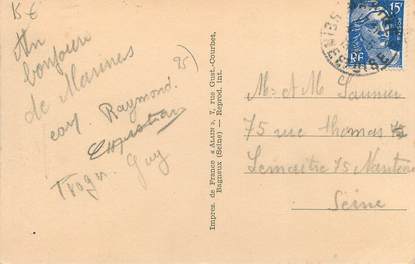 15€
95
Un
bonjour
de Marines
Raymond.
Christian
Guy
Roger
Impres. de France « ALAIN », 7, rue Gust.-Courbet,
Bagneux (Seine) — Reprod. Int.
15F
RF
M. et M. Saunier
75 rue Thomas
Lemaitre 75 Nanterre
Seine